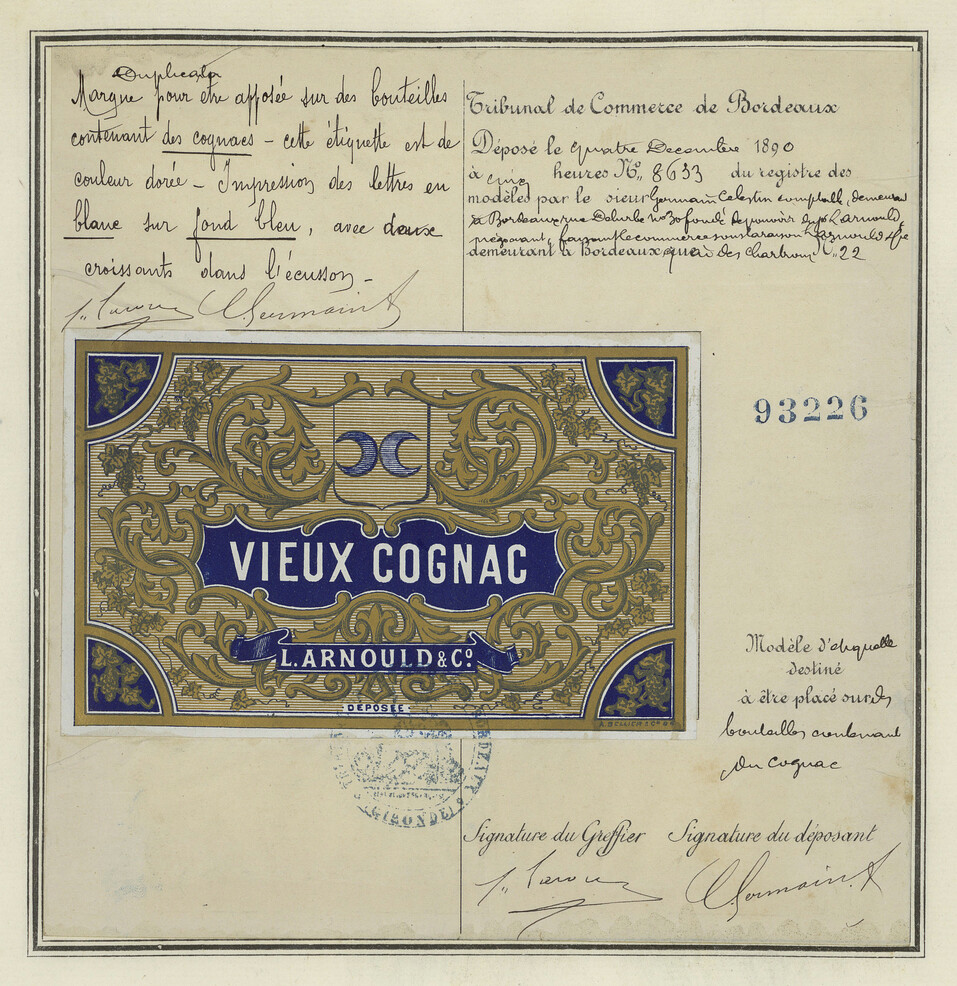 Duplicata
Marque pour être apposée sur des bouteilles
contenant des cognacs – cette étiquette est de
couleur dorée – Impression des lettres en
blanc sur fond bleu, avec deux
croissants dans l'écusson –
C. Germain
Tribunal de Commerce de Bordeaux
Déposé le quatre Decembre 1890
à cinq heures No, 8633 du registre des
modèles par le sieur Germain Celestin comptable, demeurant
à Bordeaux rue No 30 fondé de pouvoir L. Arnould,
négociant, faisant le commerce sous la raison L. Arnould & Cie
demeurant à Bordeaux quai des Chartrons No 22
93226
VIEUX COGNAC
L. ARNOULD & Co
DÉPOSÉE
Modèle d'etiquette
destiné
à être placé sur des
bouteilles contenant
du cognac
GIRONDE
Signature du Greffier Signature du déposant
C. Germain